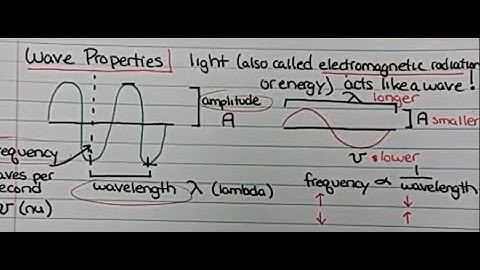 Wave Properties
light (also called electromagnetic radiation
or energy) acts like a wave!
amplitude
A
λ longer
A smaller
requency
waves per
second
ν (nu)
wavelength λ (lambda)
ν slower
frequency ∝ 1
wavelength
↑ ↓
↓ ↑